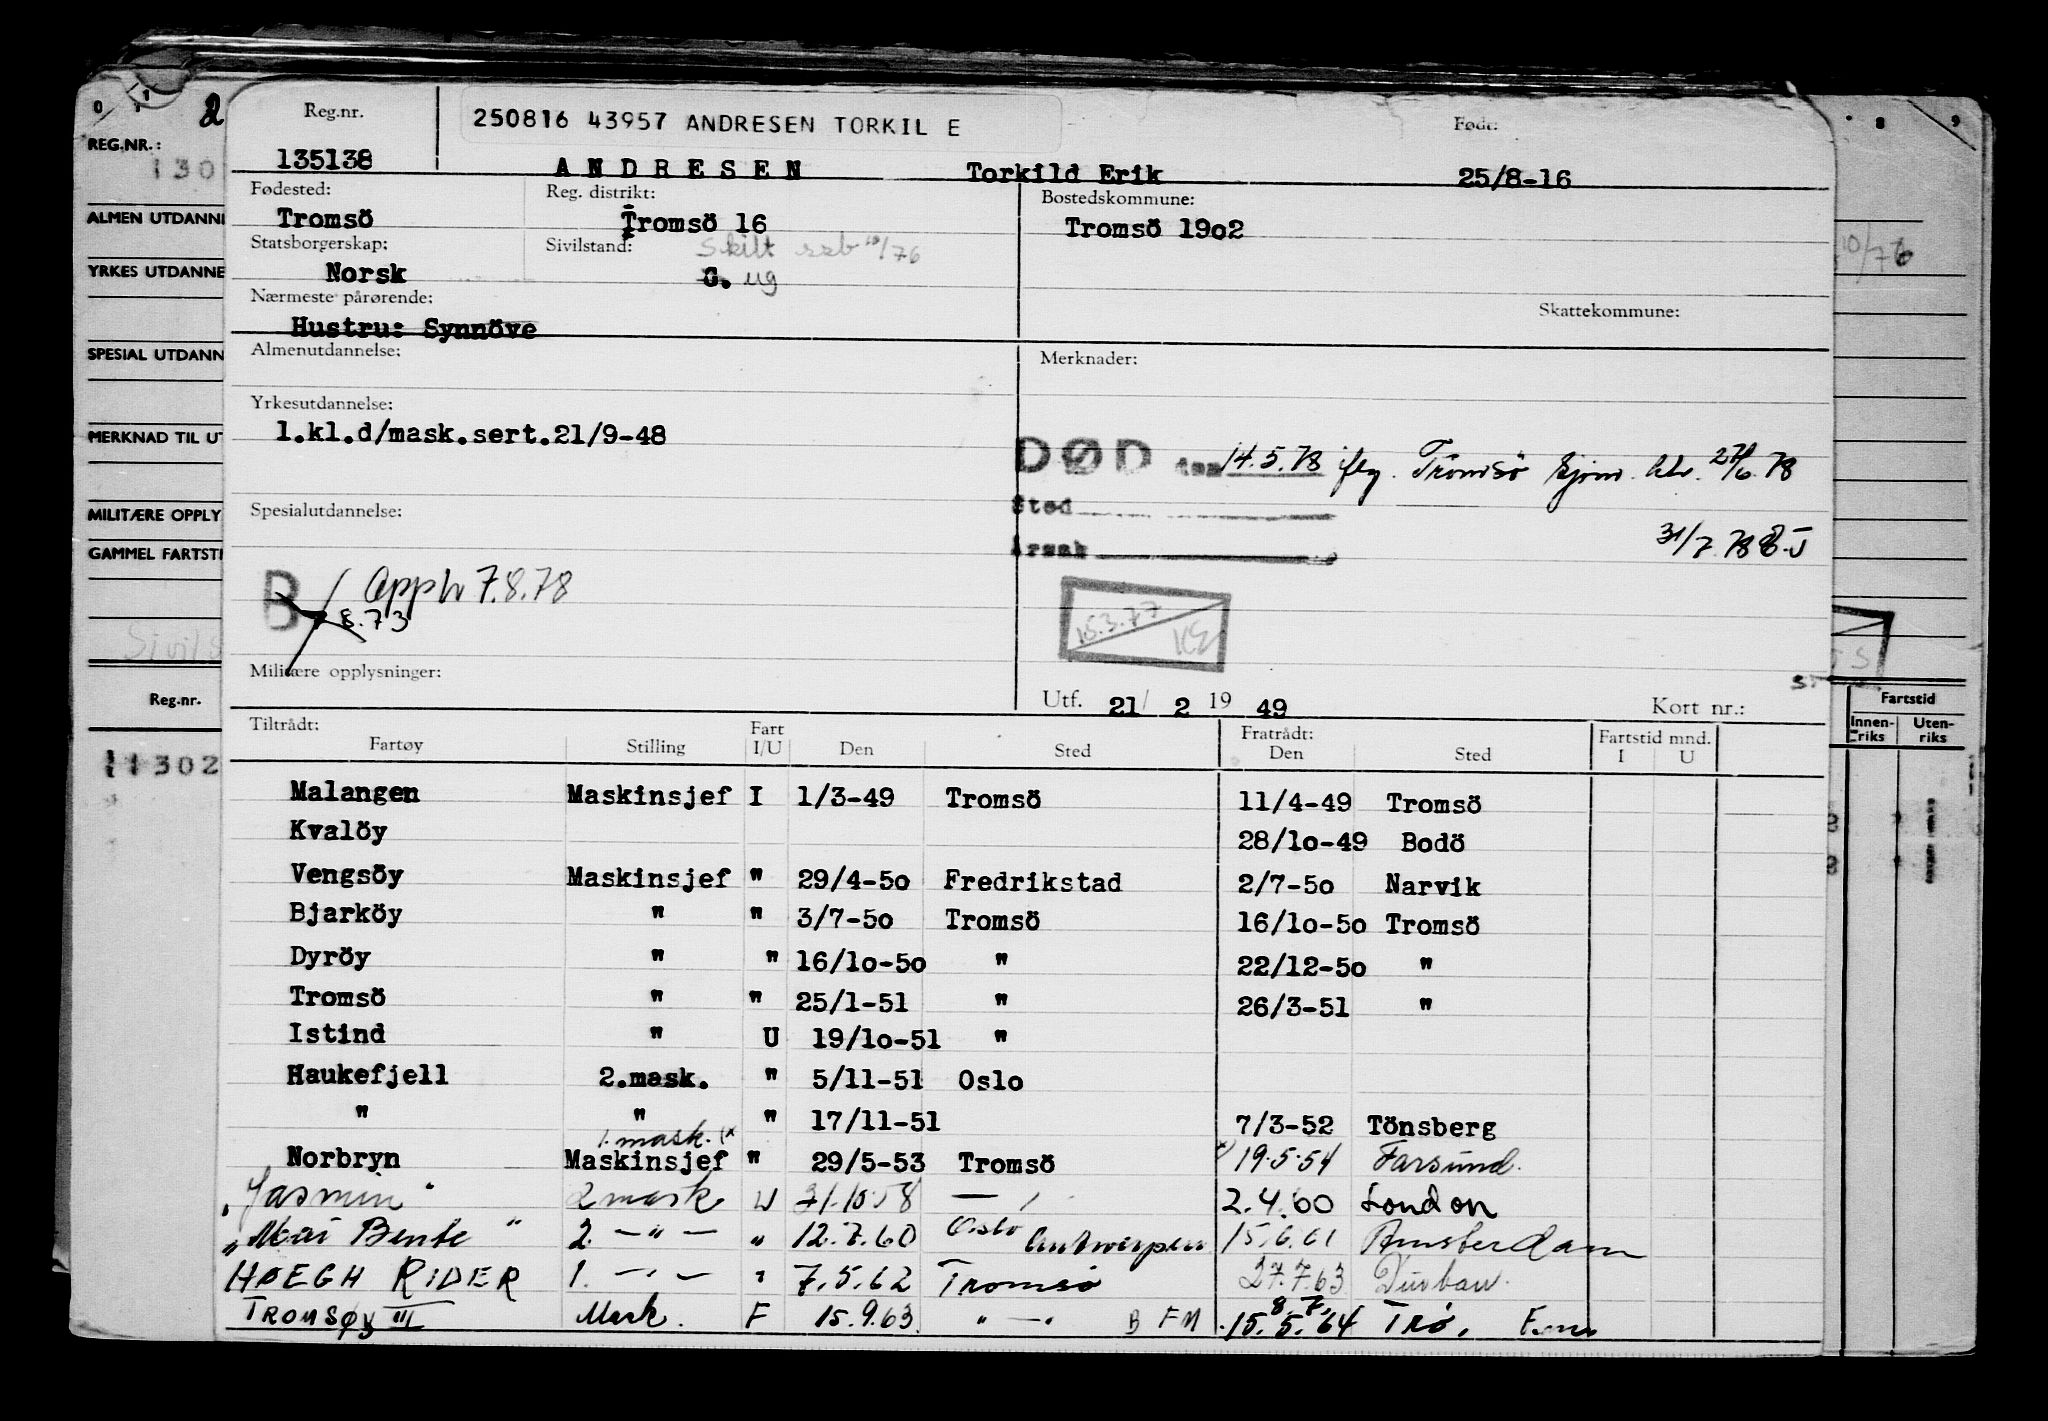 0 1 2
8 9
REG.NR.:
130
ALMEN UTDANN
YRKES UTDANNE
SPESIAL UTDANN
MERKNAD TIL UT
MILITÆRE OPPLY
GAMMEL FARTSTI
Reg.nr.
11302
10/76
Fartstid
Innen-riks Uten-riks
Reg.nr. 250816 43957 ANDRESEN TORKIL E Født:
135138 ANDRESEN Torkild Erik 25/8-16
Fødested: Reg. distrikt: Bostedskommune:
Tromsö Tromsö 16 Tromsö 1902
Statsborgerskap: Sivilstand: Skilt 10/76
Norsk G. ug
Nærmeste pårørende: Skattekommune:
Hustru: Synnöve
Almenutdannelse: Merknader:
Yrkesutdannelse:
1.kl.d/mask.sert.21/9-48
DØD den 14.5.78 iflg. Tromsö sjøm. ktr. 27/6.78
Spesialutdannelse: Sted
31/7.78
Årsak
B / Opph 7.8.78
8.73
15.3.77
Militære opplysninger:
Utf. 21/ 2 19 49 Kort nr.:
Tiltrådt: Fart Fratrådt: Fartstid mnd.
Fartøy Stilling I/U Den Sted Den Sted I U
Malangen Maskinsjef I 1/3-49 Tromsö 11/4-49 Tromsö
Kvalöy 28/10-49 Bodö
Vengsöy Maskinsjef " 29/4-50 Fredrikstad 2/7-50 Narvik
Bjarköy " " 3/7-50 Tromsö 16/10-50 Tromsö
Dyröy " " 16/10-50 " 22/12-50 "
Tromsö " " 25/1-51 " 26/3-51 "
Istind " U 19/10-51 "
Haukefjell 2.mask. " 5/11-51 Oslo
" " " 17/11-51 7/3-52 Tönsberg
1. mask. (x
Norbryn Maskinsjef " 29/5-53 Tromsö x) 19.5.54 Farsund.
"Jasmin" 2 mask U 31.10.58 — " 2.4.60 London
"Mai Bente" 2. — " — " 12.7.60 Oslo Antwerpen 15.6.61 Amsterdam
HØEGH RIDER 1. — " — " 7.5.62 Tromsö 27.7.63 Durban.
8.7.
TROMSØY III Mask. F 15.9.63. " — " B FM 15.5.64 Trø.